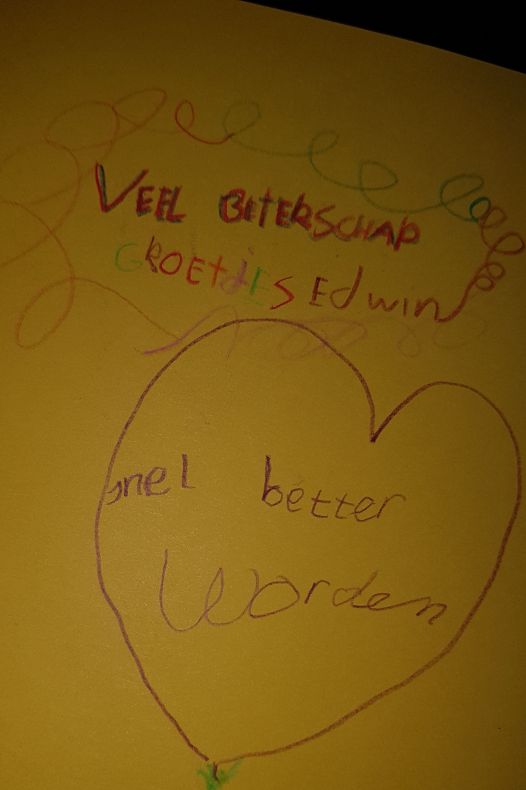 VEEL BETERSCHAP
GROETJES Edwin
snel better
Worden